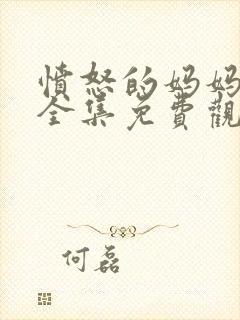 憤怒的妈妈
全集免費觀
何磊